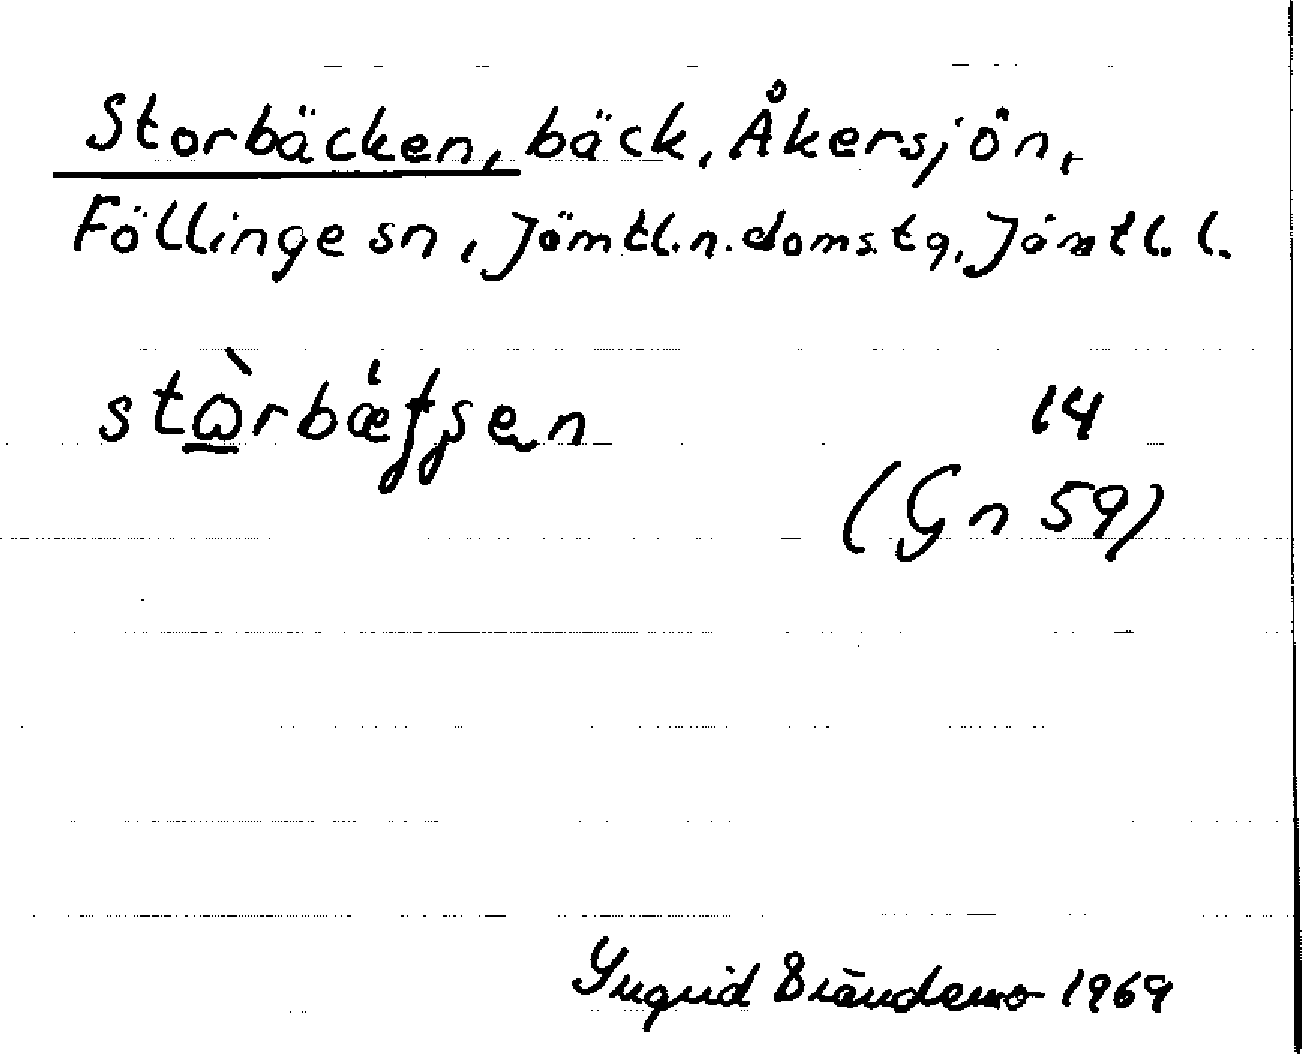 Storbäcken, bäck, Åkersjön,
Föllinge sn, Jämtl.n.domstg, Jämtl.l.
stɷ̀rbǽtʃen 14
(Gn 59)
Yngrid Brändemo 1969